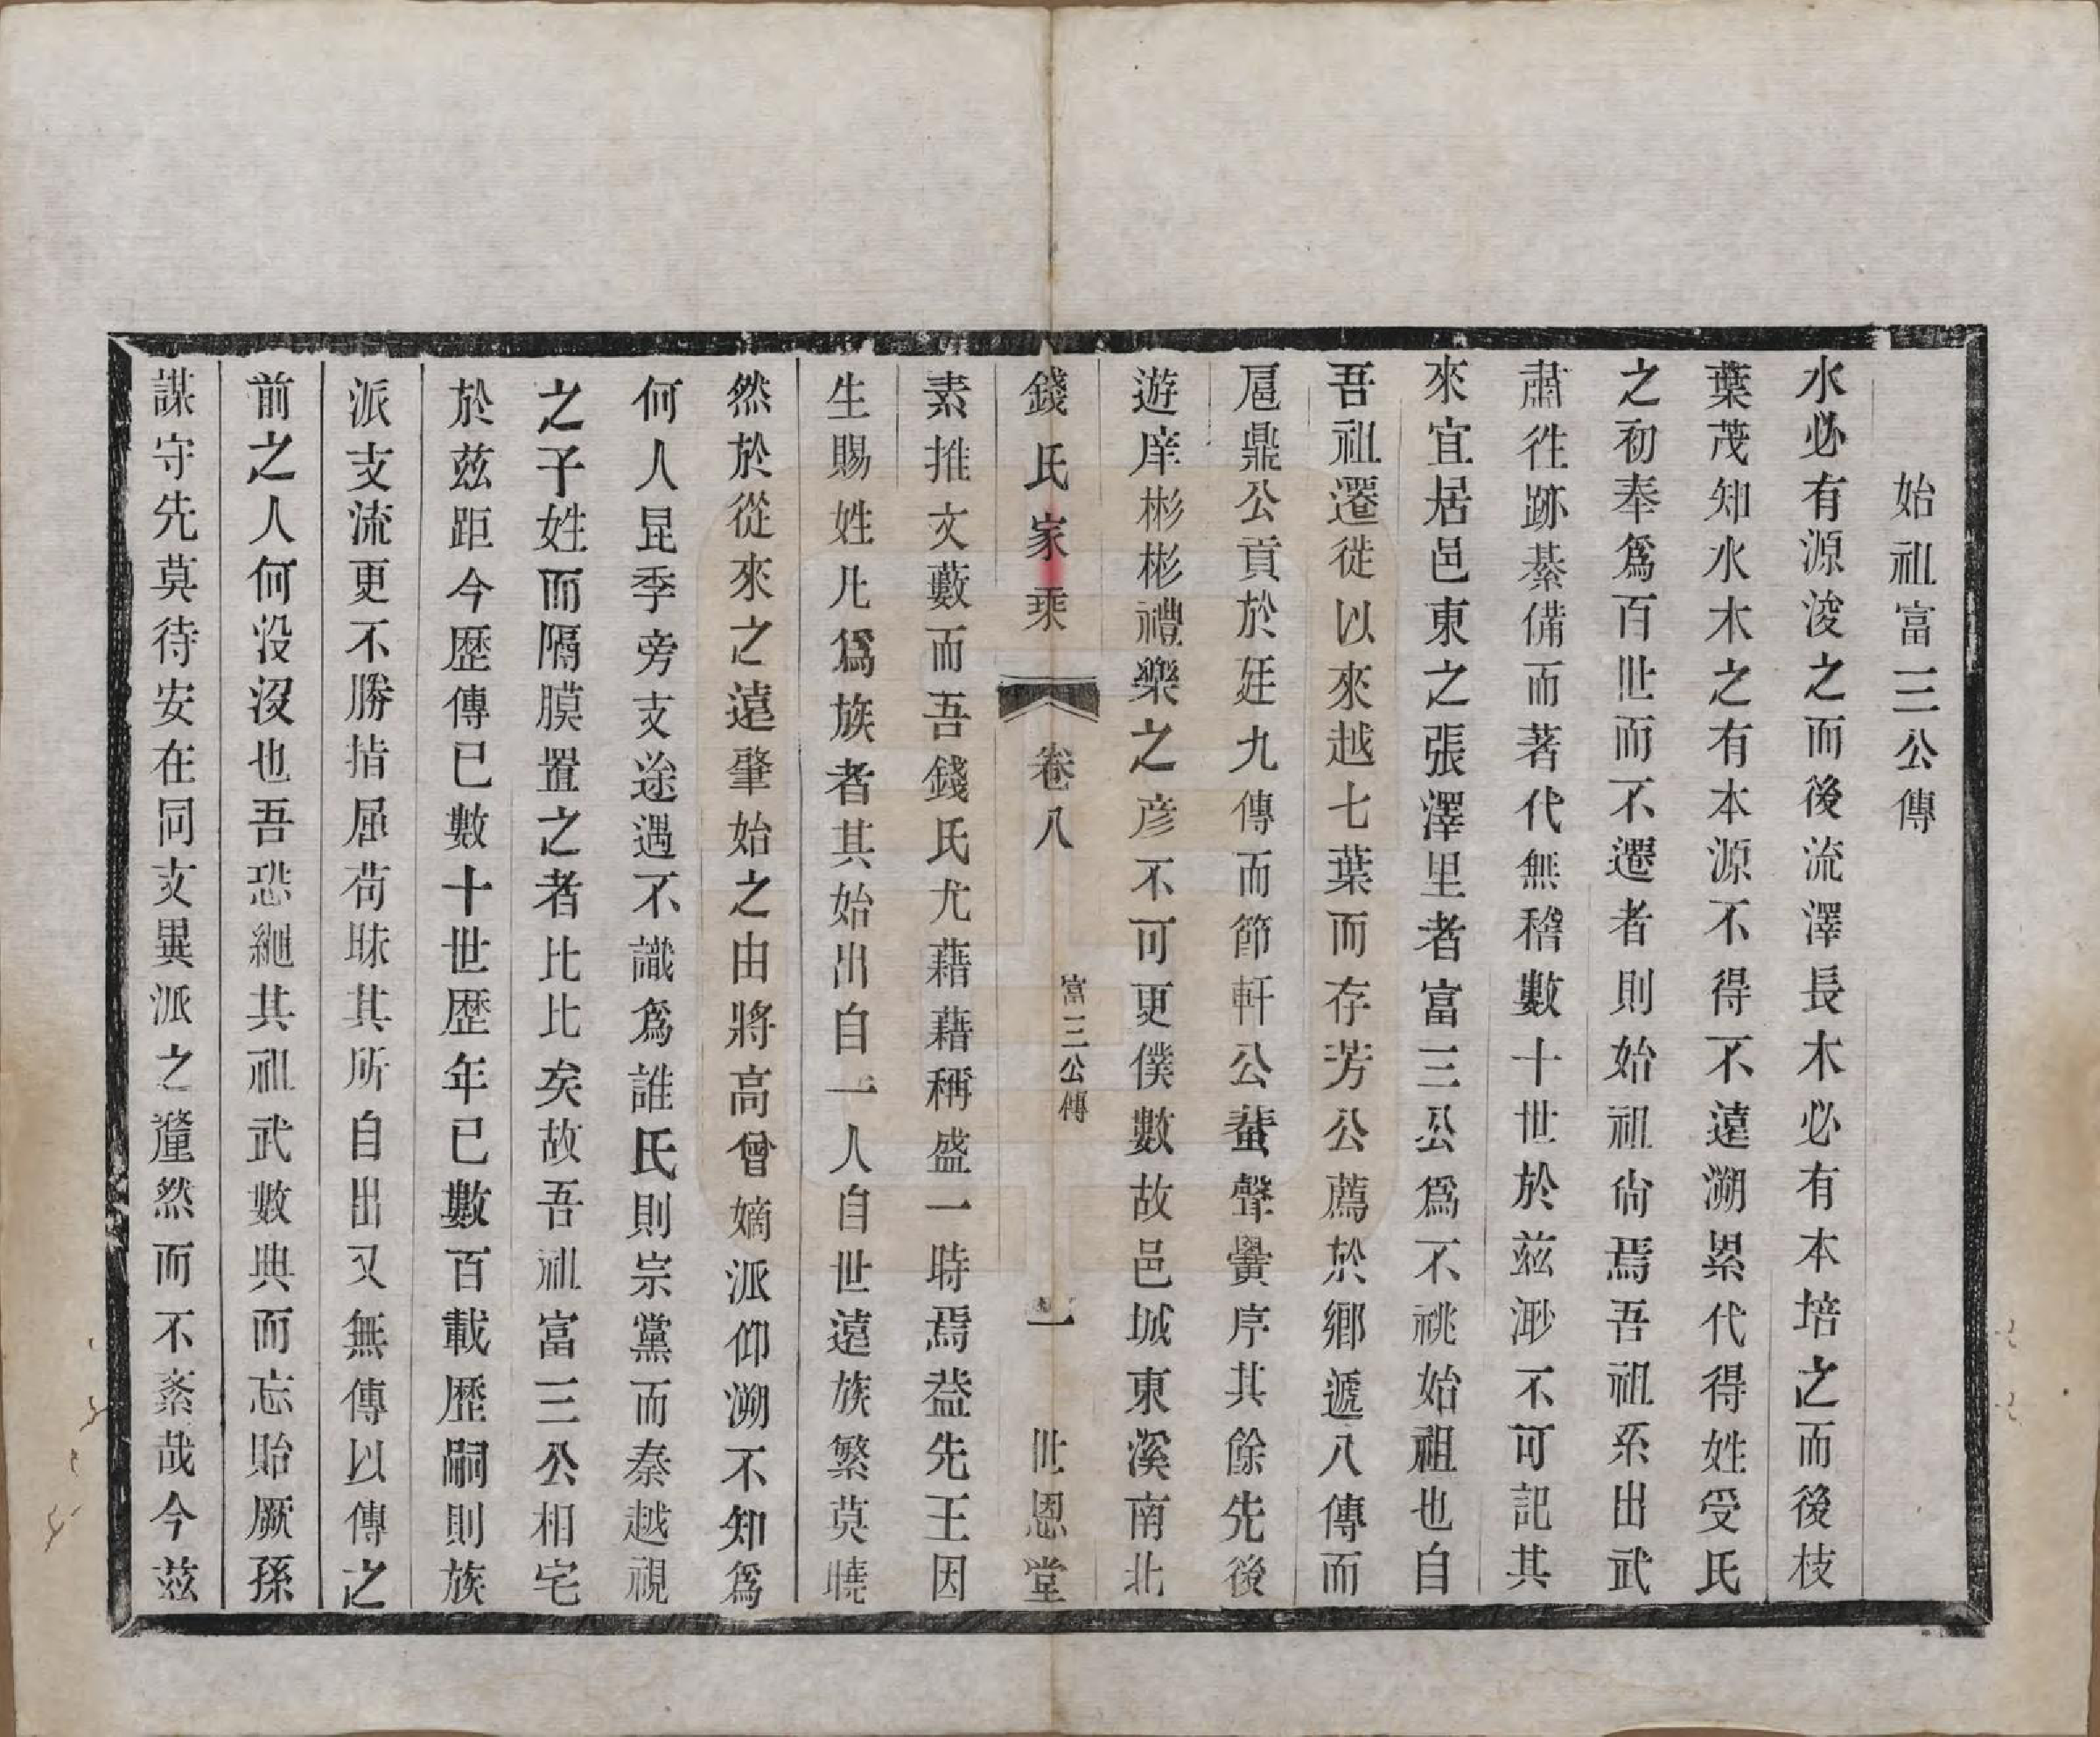 始祖富三公傳
水必有源浚之而後流澤長木必有本培之而後枝
葉茂知水木之有本源不得不遠溯累代得姓受氏
之初奉爲百世而不遷者則始祖尙焉吾祖系出武
肅徃跡綦備而著代無稽數十世於茲渺不可記其
來宜居邑東之張澤里者富三公爲不祧始祖也自
吾祖遷徙以來越七葉而存芳公薦於鄉遞八傳而
扈鼎公貢於廷九傳而節軒公蜚聲黌序其餘先後
遊庠彬彬禮樂之彦不可更僕數故邑城東溪南北
錢氏家乘
卷八
富三公傳
一
世恩堂
素推文藪而吾錢氏尤藉藉稱盛一時焉葢先王因
生賜姓凡爲族者其始出自一人自世遠族繁莫曉
然於從來之遠肇始之由將高曾嫡派仰溯不知爲
何人昆季旁支途遇不識爲誰氏則宗黨而秦越視
之子姓而隔膜置之者比比矣故吾祖富三公相宅
於茲距今歷傳已數十世歷年已數百載歷嗣則族
派支流更不勝指屈苟昧其所自出又無傳以傳之
前之人何没没也吾恐繩其祖武數典而忘貽厥孫
謀守先莫待安在同支異派之釐然而不紊哉今茲